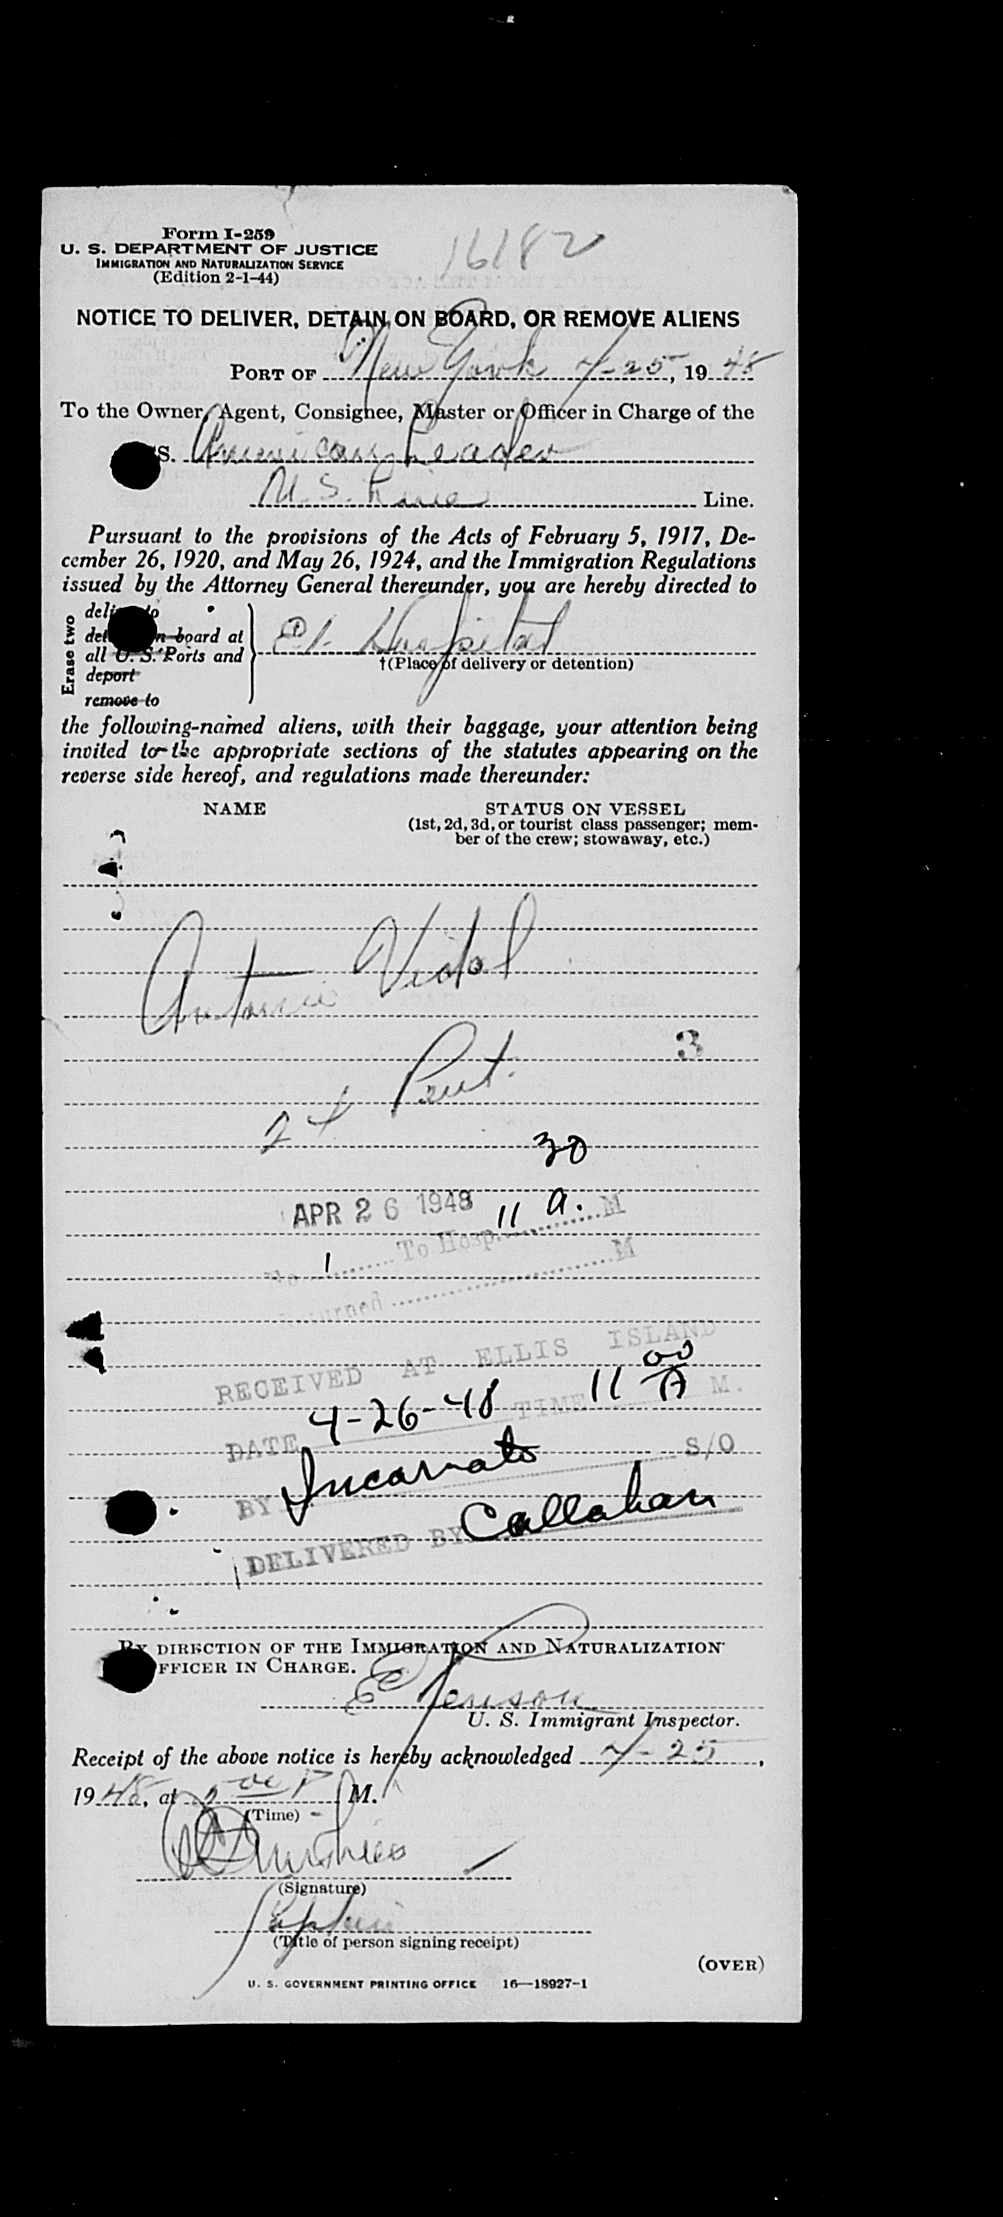 Form I-259
U. S. DEPARTMENT OF JUSTICE
IMMIGRATION AND NATURALIZATION SERVICE
(Edition 2-1-44)
16182
NOTICE TO DELIVER, DETAIN ON BOARD, OR REMOVE ALIENS
PORT OF New York 4-25, 1948
To the Owner, Agent, Consignee, Master or Officer in Charge of the
SS. American Leader
U.S. Line Line.
Pursuant to the provisions of the Acts of February 5, 1917, De-
cember 26, 1920, and May 26, 1924, and the Immigration Regulations
issued by the Attorney General thereunder, you are hereby directed to
Erase two
deliver to
detain on board at
all U. S. Ports and
deport
remove to
EI. Hospital
†(Place of delivery or detention)
the following-named aliens, with their baggage, your attention being
invited to the appropriate sections of the statutes appearing on the
reverse side hereof, and regulations made thereunder:
NAME STATUS ON VESSEL
(1st, 2d, 3d, or tourist class passenger; mem-
ber of the crew; stowaway, etc.)
Antonio Vidal
3
24 Port.
30
APR 26 1948 11 A. M
No 1 To Hosp.
Returned M
RECEIVED AT ELLIS ISLAND
DATE 4-26-48 TIME 11 00 A M.
BY Incarnato S/O
DELIVERED BY Callahan
BY DIRECTION OF THE IMMIGRATION AND NATURALIZATION
OFFICER IN CHARGE.
U. S. Immigrant Inspector.
Receipt of the above notice is hereby acknowledged 4-25,
1948, at 2 00 P M.
(Time)
(Signature)
Captain
(Title of person signing receipt)
(OVER)
U. S. GOVERNMENT PRINTING OFFICE 16—18927-1